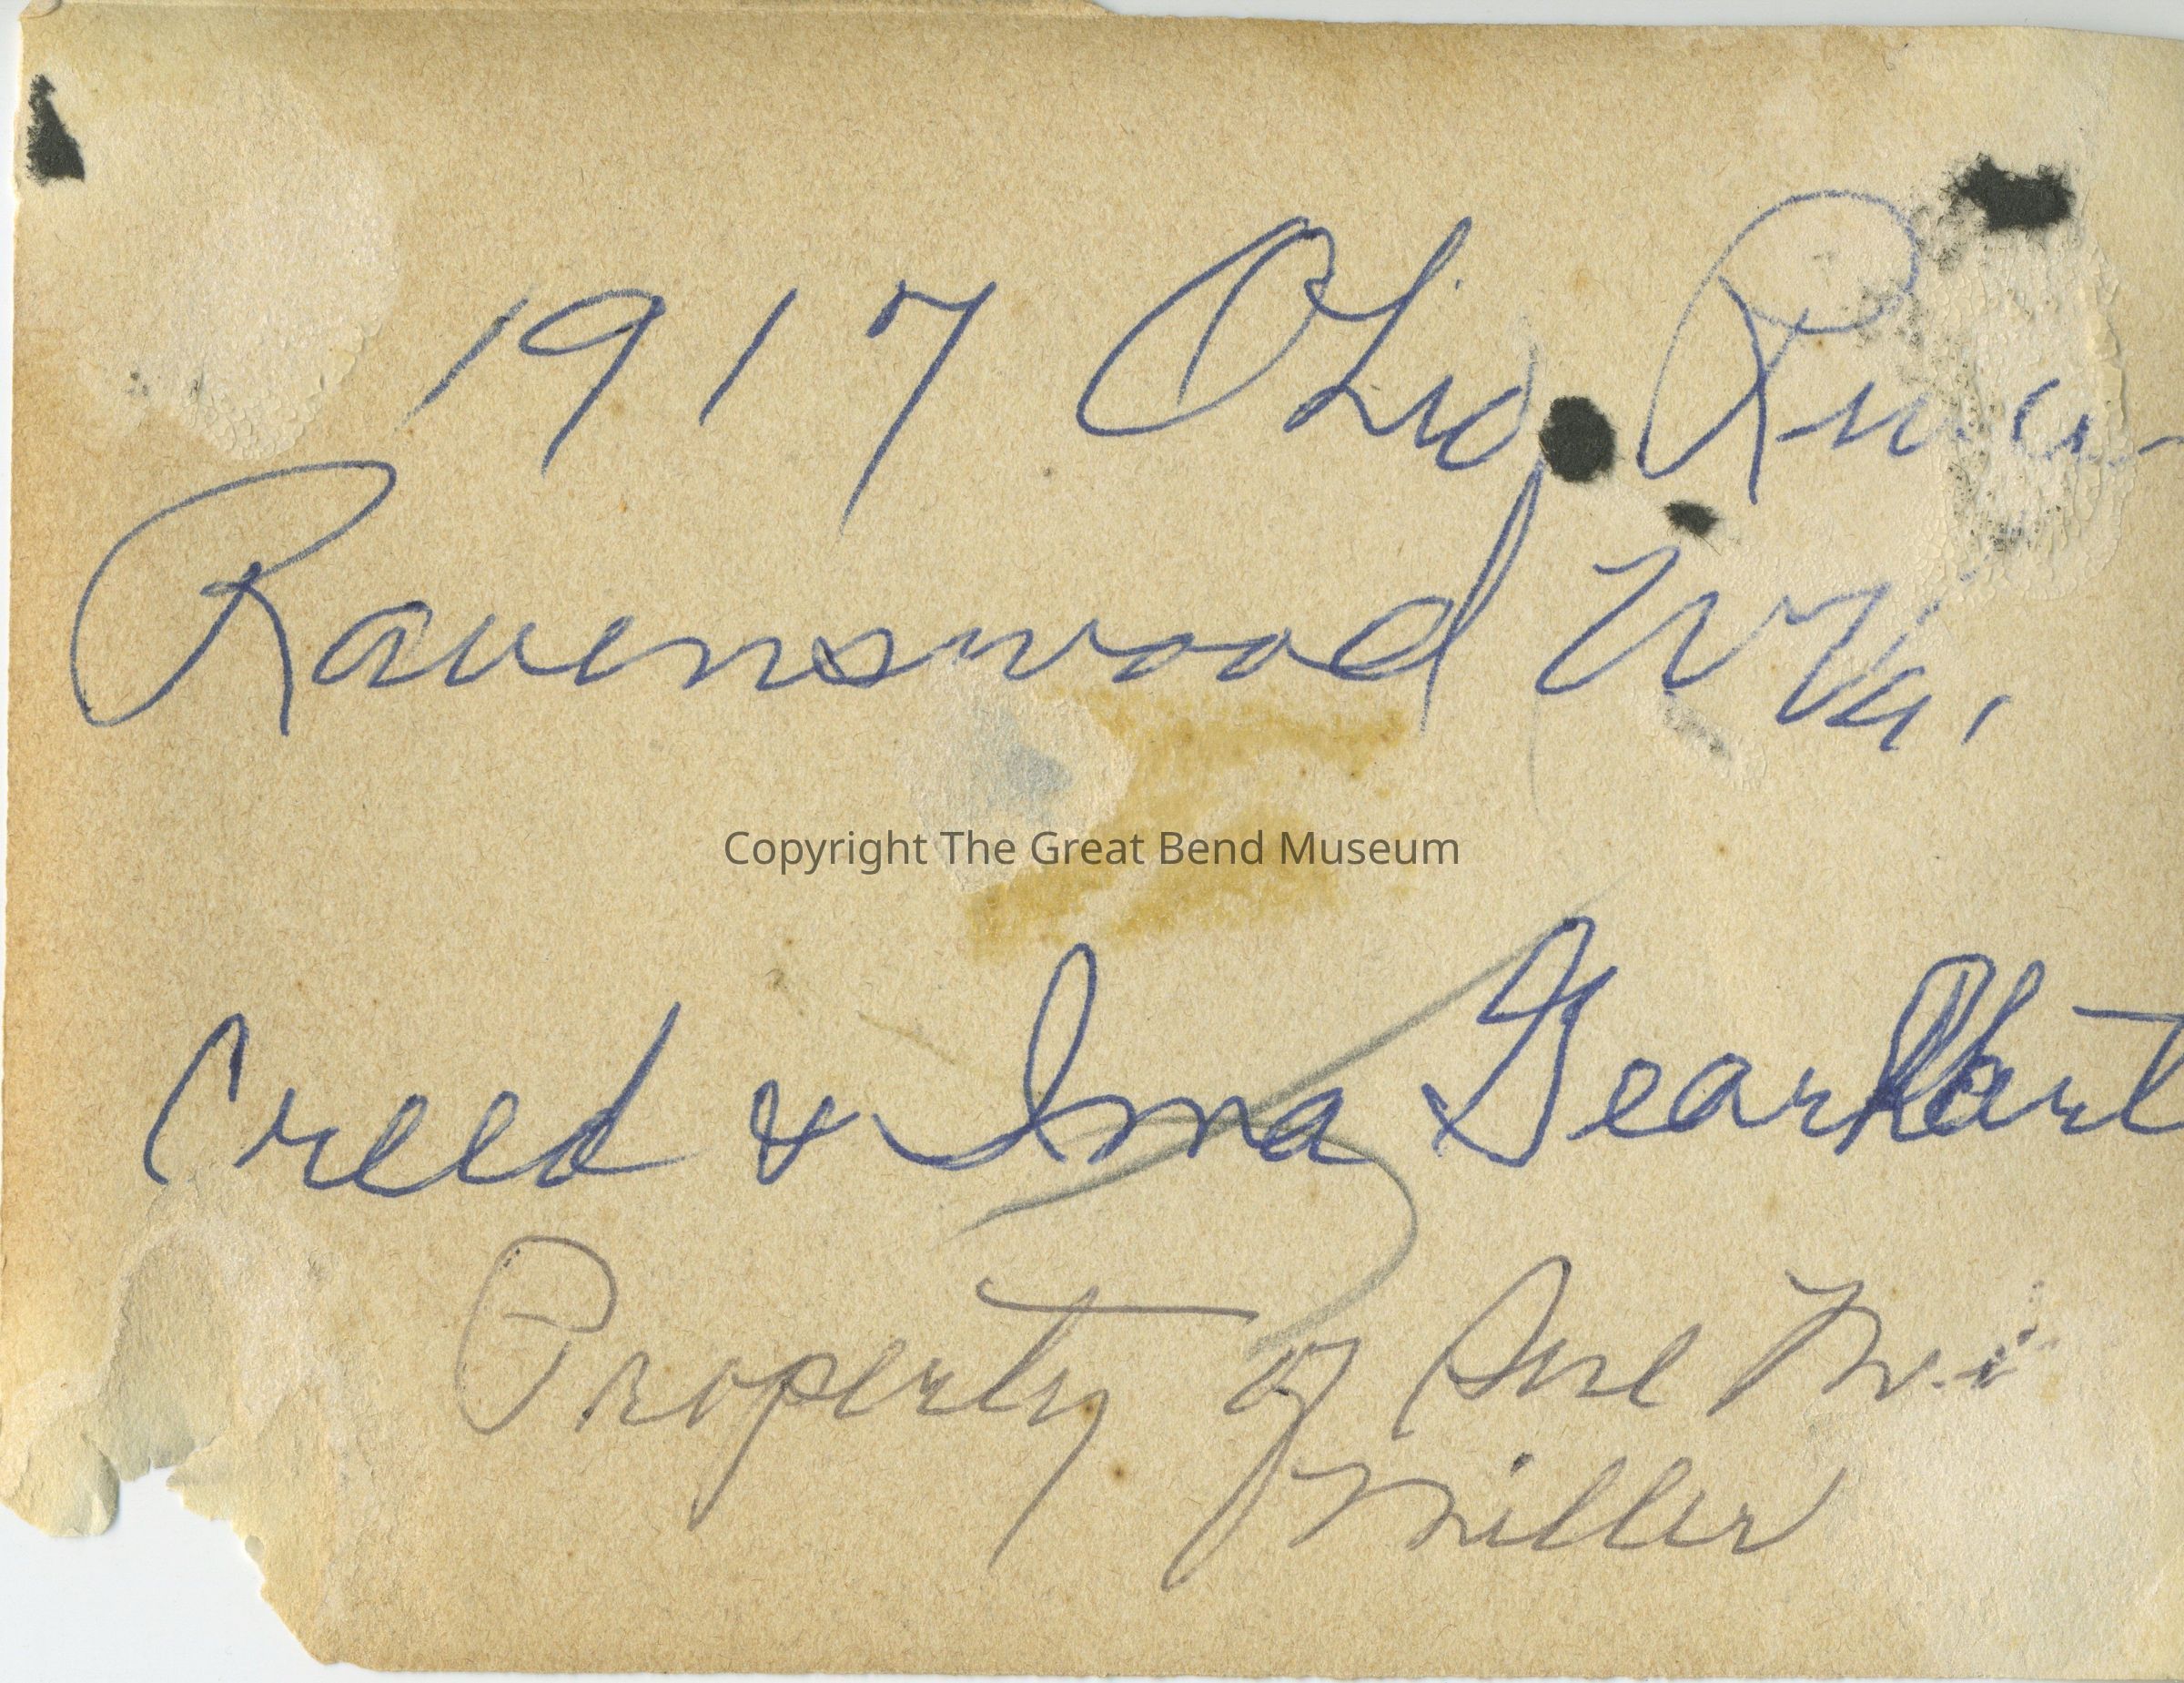 1917 Ohio River
Ravenswood W Va.
Copyright The Great Bend Museum
Creed & Ima Gearhart
Property of Sue
Miller